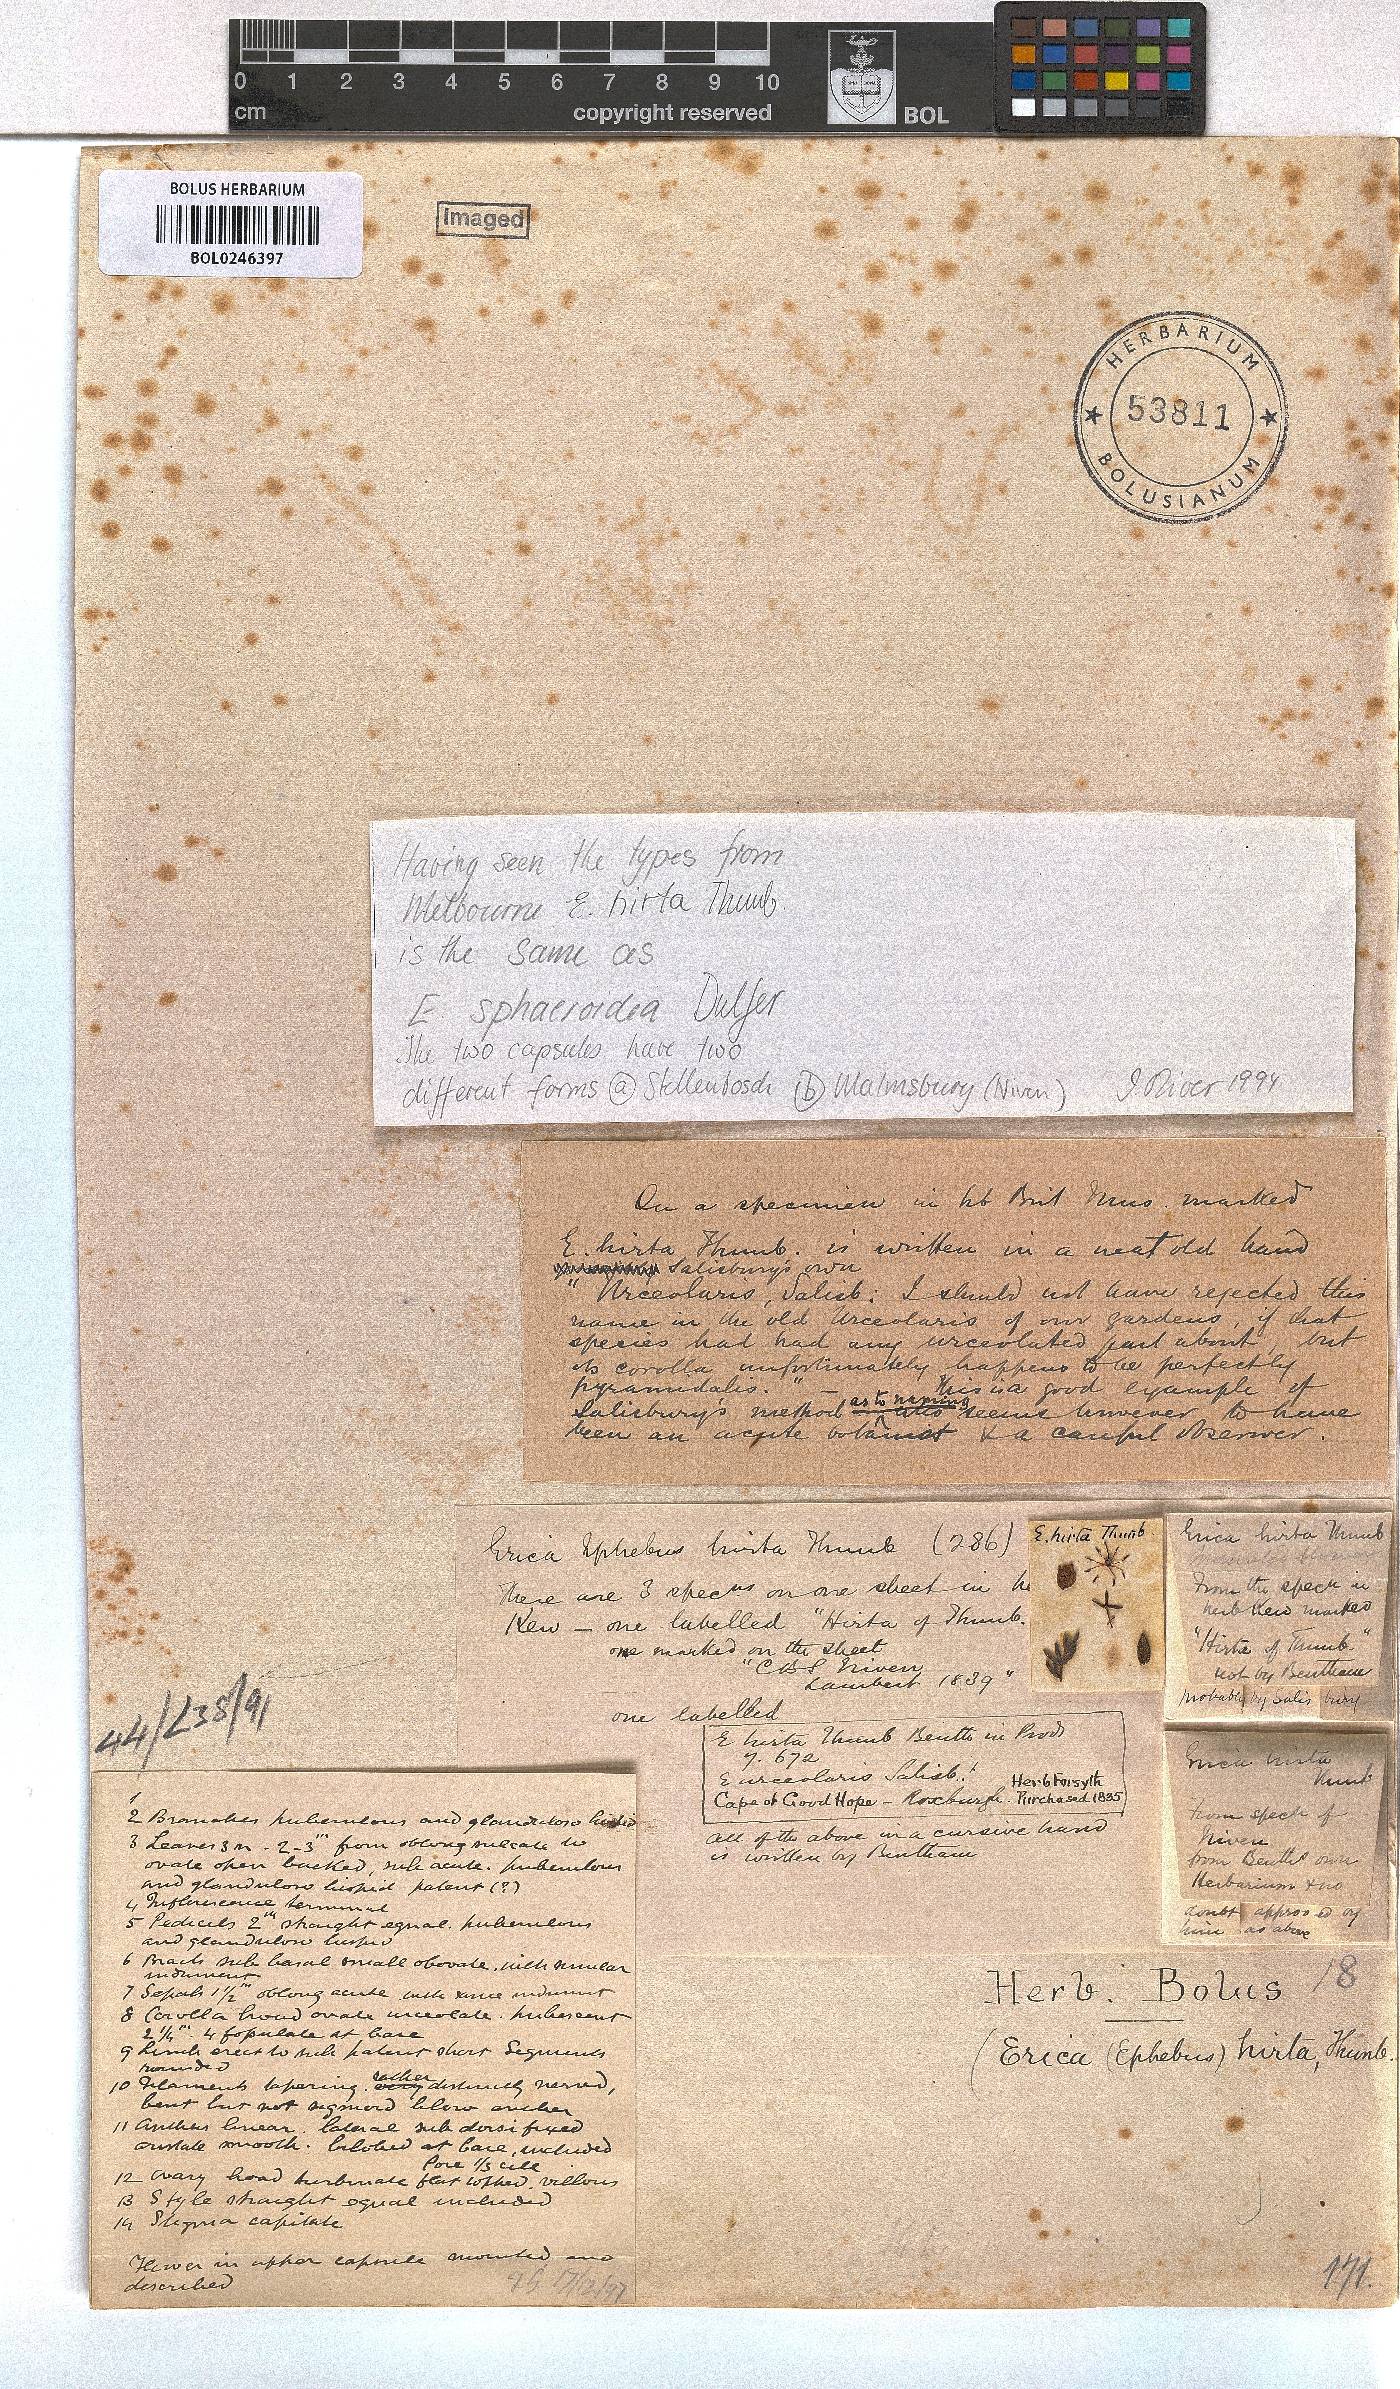 0 1 2 3 4 5 6 7 8 9 10
cm
copyright reserved
BOL
BOLUS HERBARIUM
BOL0246397
Imaged
HERBARIUM
53811
BOLUSIANUM
Having seen the types from
Melbourne E. hirta Thunb.
is the same as
E. sphaeroidea Dulfer
The two capsules have two
different forms (a) Stellenbosch (b) Malmsbury (Niven) I. Oliver 1994
On a specimen in hb Brit Mus. marked
E. hirta Thunb. is written in a neat old hand
Salisbury's own
" Urceolaris, Salisb: I should not have rejected this
name in the old Urceolaris of our gardens, if that
species had had any urceolated part about, but
its corolla unfortunately happens to be perfectly
pyramidalis." – This is a good example of
Salisbury's method as to naming who seems however to have
been an acute botanist & a careful observer.
Erica Ephebus hirta Thunb (286)
There are 3 specns on one sheet in he
Kew – one labelled "Hirta of Thunb.
one marked on the sheet
"C B S Niven
Lambert 1839"
one labelled
E hirta Thunb Benth in Prod
7. 672
E urceolaris Salisb.!
Herb Forsyth
Cape of Good Hope – Roxburgh. Purchased 1835
all of the above in a cursive hand
is written by Bentham
E. hirta Thunb.
Erica hirta Thunb
From the specn in
herb Kew marked
"Hirta of Thunb."
not by Bentham
probably by Salisbury
Erica hirta
Thunb
from specn of
Niven
from Benth's own
Herbarium & no
doubt approved by
him as above
44/L38/91
1
2 Branches puberulous and glandulose hispid
3 Leaves 3n. 2-3''' from oblong sulcate to
ovate open backed, sub acute. puberulous
and glandulose hispid patent (?)
4 Inflorescence terminal
5 Pedicels 2''' straight equal. puberulous
and glandulose hispid
6 Bracts sub basal small obovate. with similar
indument
7 Sepals 1½''' oblong acute with same indument
8 Corolla broad ovate urceolate. pubescent
2¼'''. 4 fopulate at base
9 Limb erect to sub patent short Segments
rounded
10 Filaments tapering. rather distinctly nerved,
bent but not sigmoid below anther
11 Anthers linear. lateral sub dorsifixed
aristate smooth. bilobed at base, included
Pore ⅓ cell
12 Ovary broad turbinate flat topped. villous
13 Style straight equal included
14 Stigma capitate
Flower in upper capsule mounted and
described
Herb. Bolus 18
(Erica (Ephebus) hirta, Thunb.
171.